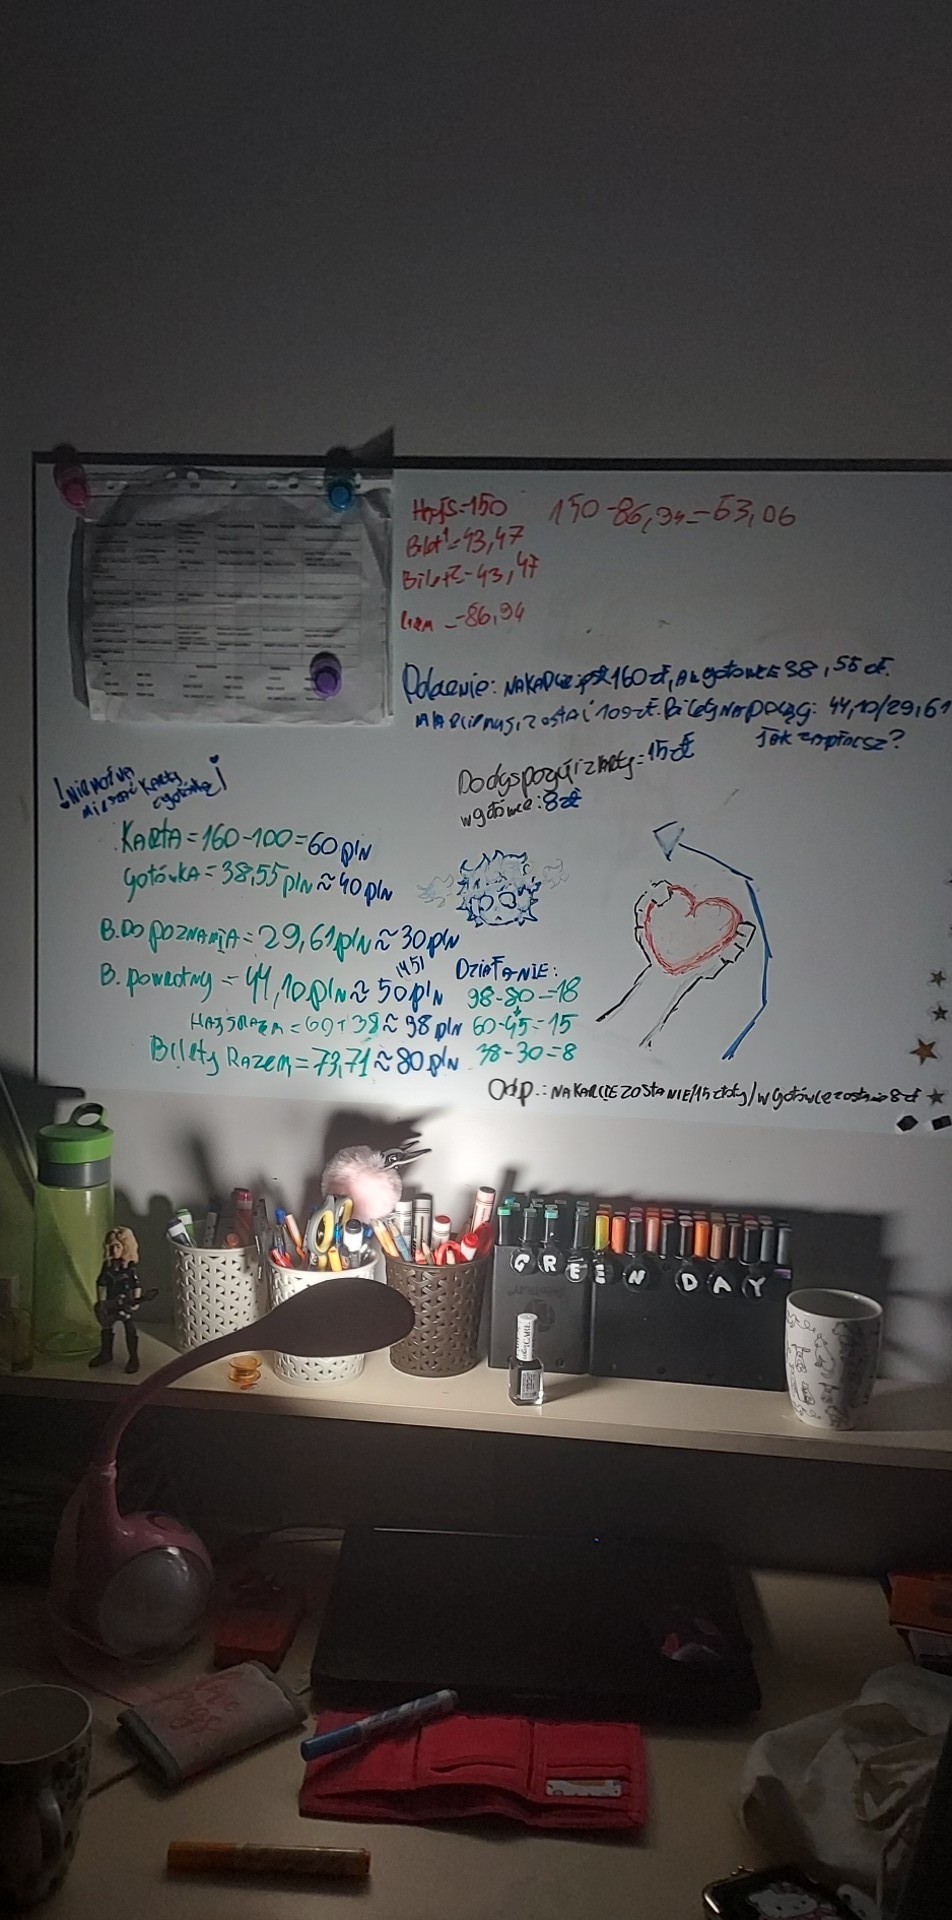 HajS=150 150-86,94=63,06
Bilet1=43,47
Bilet2=43,47
=86,94
Polecenie: NA KARCIE jest 160 zł, A w gotówce 38,55 zł.
NA KARCIE musi zostać 100 zł. Bilety NA POCIĄG: 44,10/29,61
JAK zapłacisz?
Do dyspozycji z karty=15 zł
w gotówce: 8 zł
! NIE MOŻNA
MIESZAĆ KARTY
z gotówką!
KARTA=160-100=60 pln
gotówka=38,55 pln≈40 pln
B. DO POZNANIA=29,61 pln≈30 pln
B. powrotny=44,10 pln≈50 pln
(45)
DZIAŁANIE:
98-80=18
HAJS RAZEM=60+38≈98 pln 60-45=15
Bilety RAZEM=73,71≈80 pln 38-30=8
Odp.: NA KARCIE ZOSTANIE 15 złoty/w gotówce zostanie 8 zł
GREEN DAY